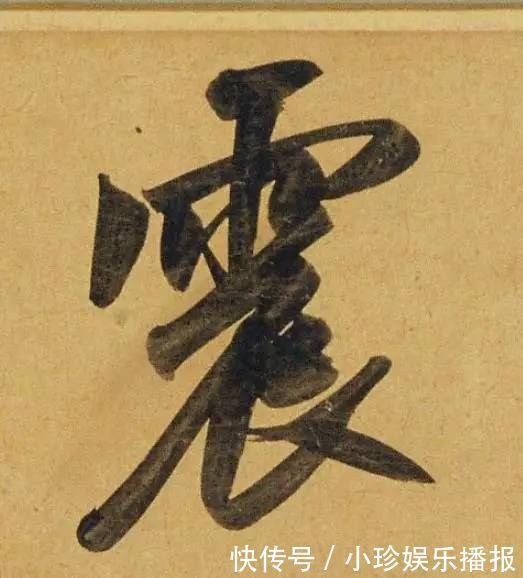 震
快传号 / 小珍娱乐播报